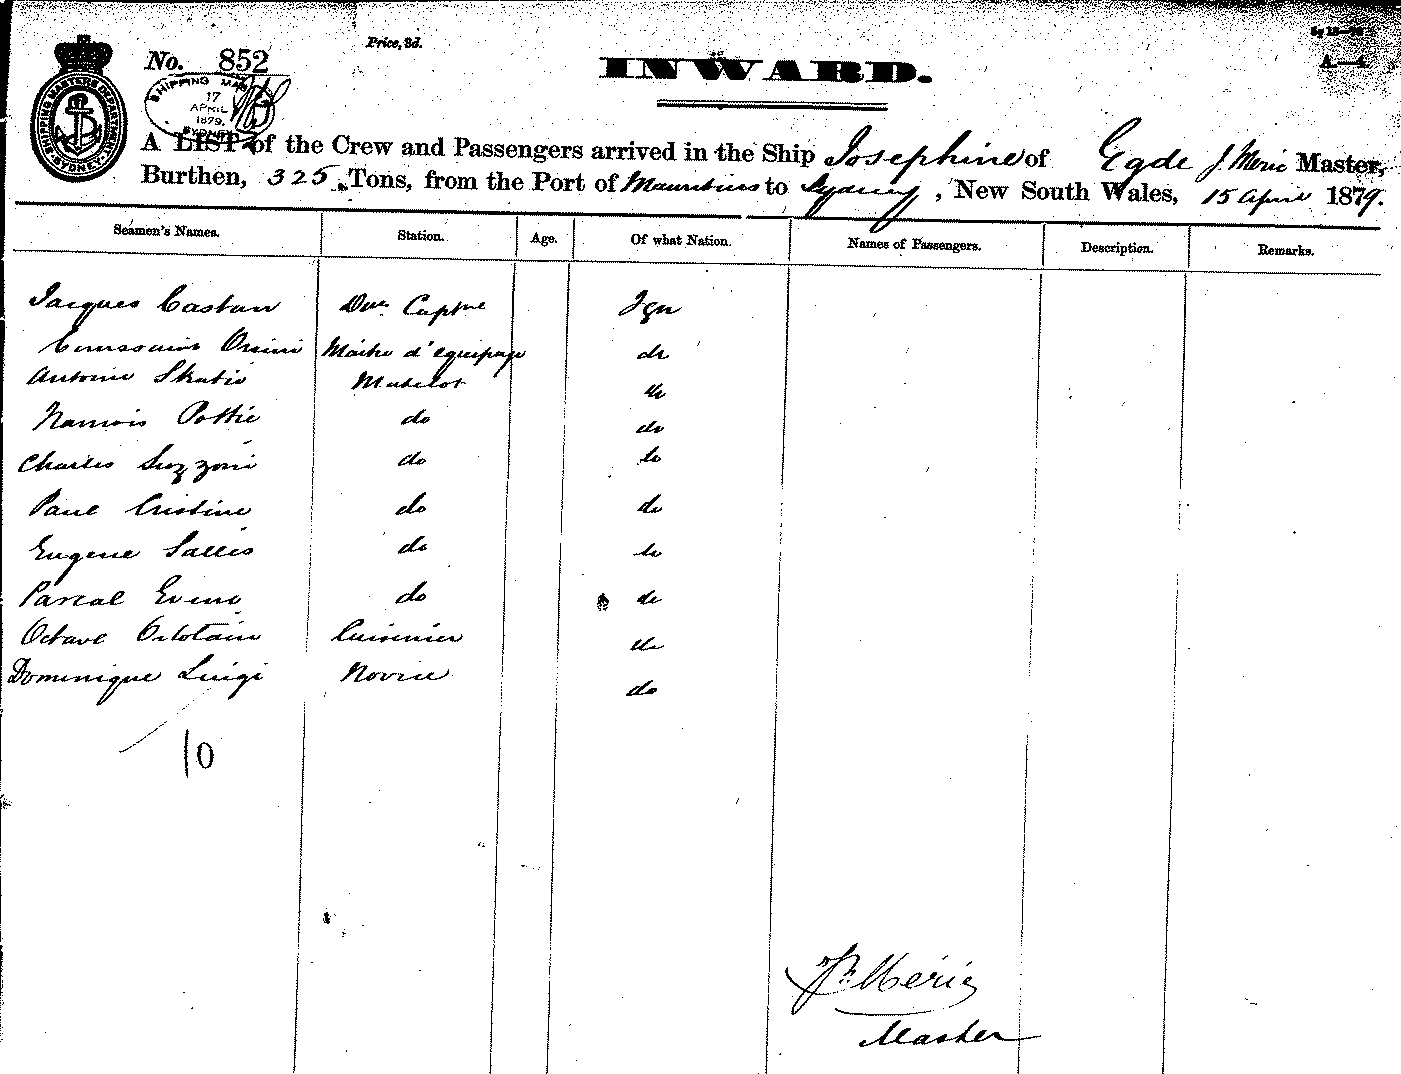 Price, 3d.
No. 852
INWARD.
SHIPPING MASTERS DEPARTMENT SYDNEY
SHIPPING MAS
17
APRIL
1879.
SYDNEY
A LIST of the Crew and Passengers arrived in the Ship Josephine of Egde J Meric Master,
Burthen, 325 Tons, from the Port of Mauritius to Sydney, New South Wales, 15 April 1879.
Seamen's Names. Station. Age. Of what Nation. Names of Passengers. Description. Remarks.
Jacques Castan
Toussaint Orsini Maitre d'equipage do
Antoine Matelot do
Pottie do do
Charles Suzzoni do do
Paul Cristini do do
Eugene Salles do do
Pascal do do
Octave Cuisinier do
Dominique Luigi Novice do
10
Méric
Master